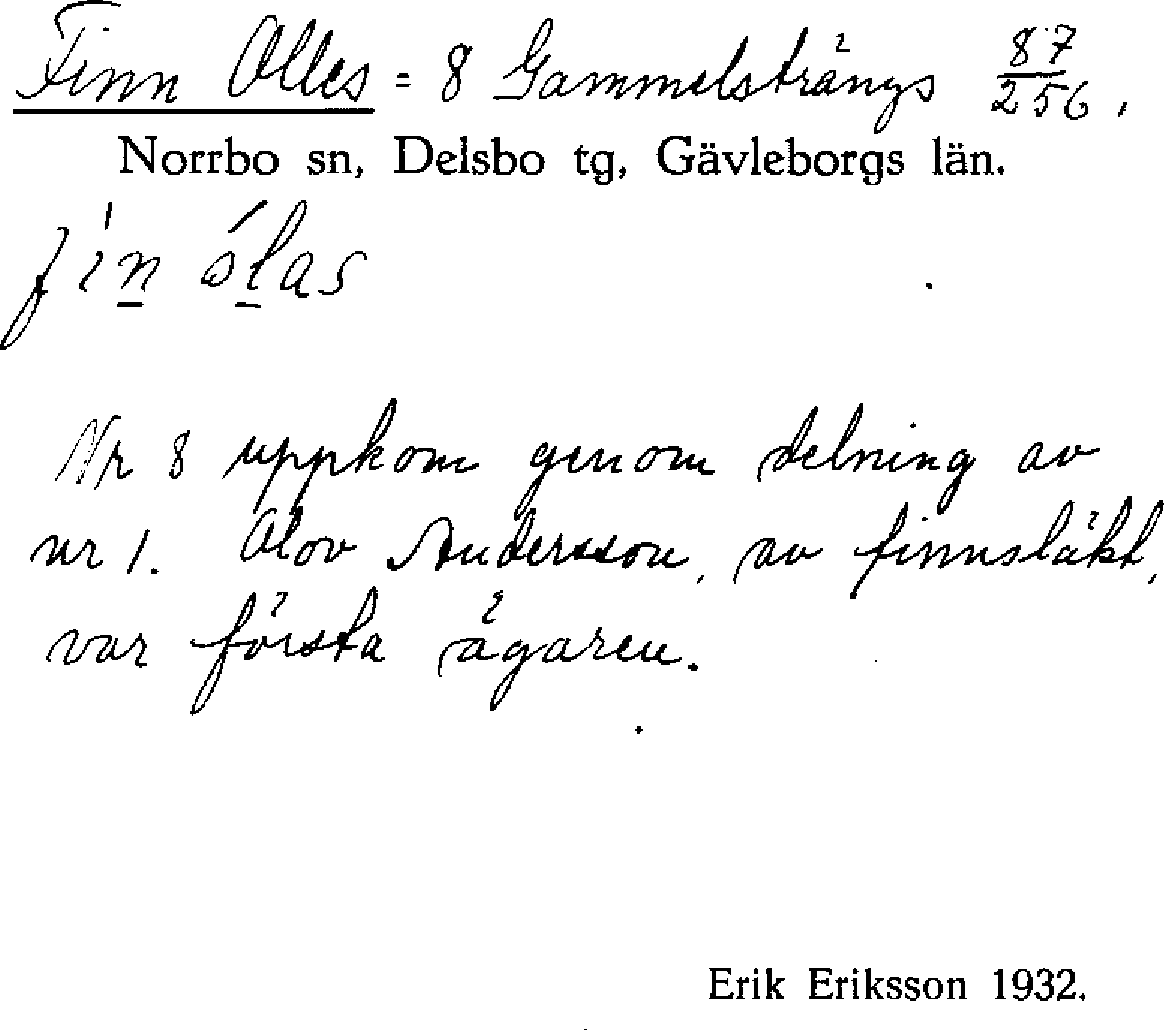 Finn Olles = 8 Gammelsträngs 87/256,
Norrbo sn, Delsbo tg, Gävleborgs län.
fìn ólas
Nr 8 uppkom genom delning av
nr 1. Olov Andersson, av finnsläkt,
var första ägaren.
Erik Eriksson 1932.